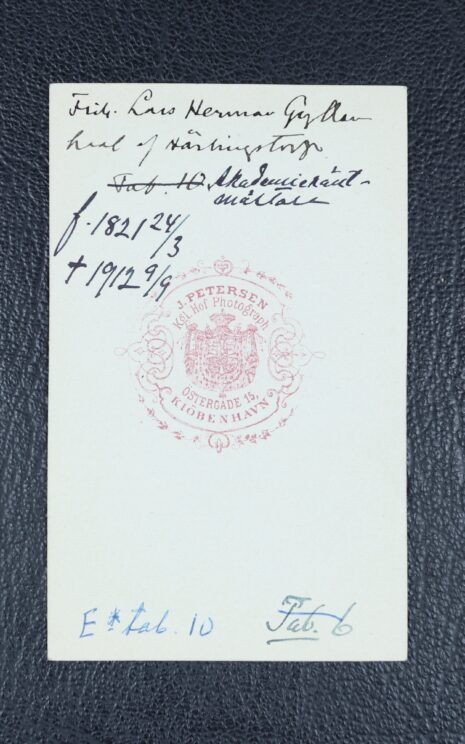 Frih. Lars Herman Gyllen
haal af Härlingstorp
Tab. 10 Akademieränt-
mästare
f. 1821 24/3
† 1912 9/9
J. PETERSEN
Kgl. Hof Photograph
ÖSTERGADE 15,
KIÖBENHAVN
E* tab. 10
Tab. 6